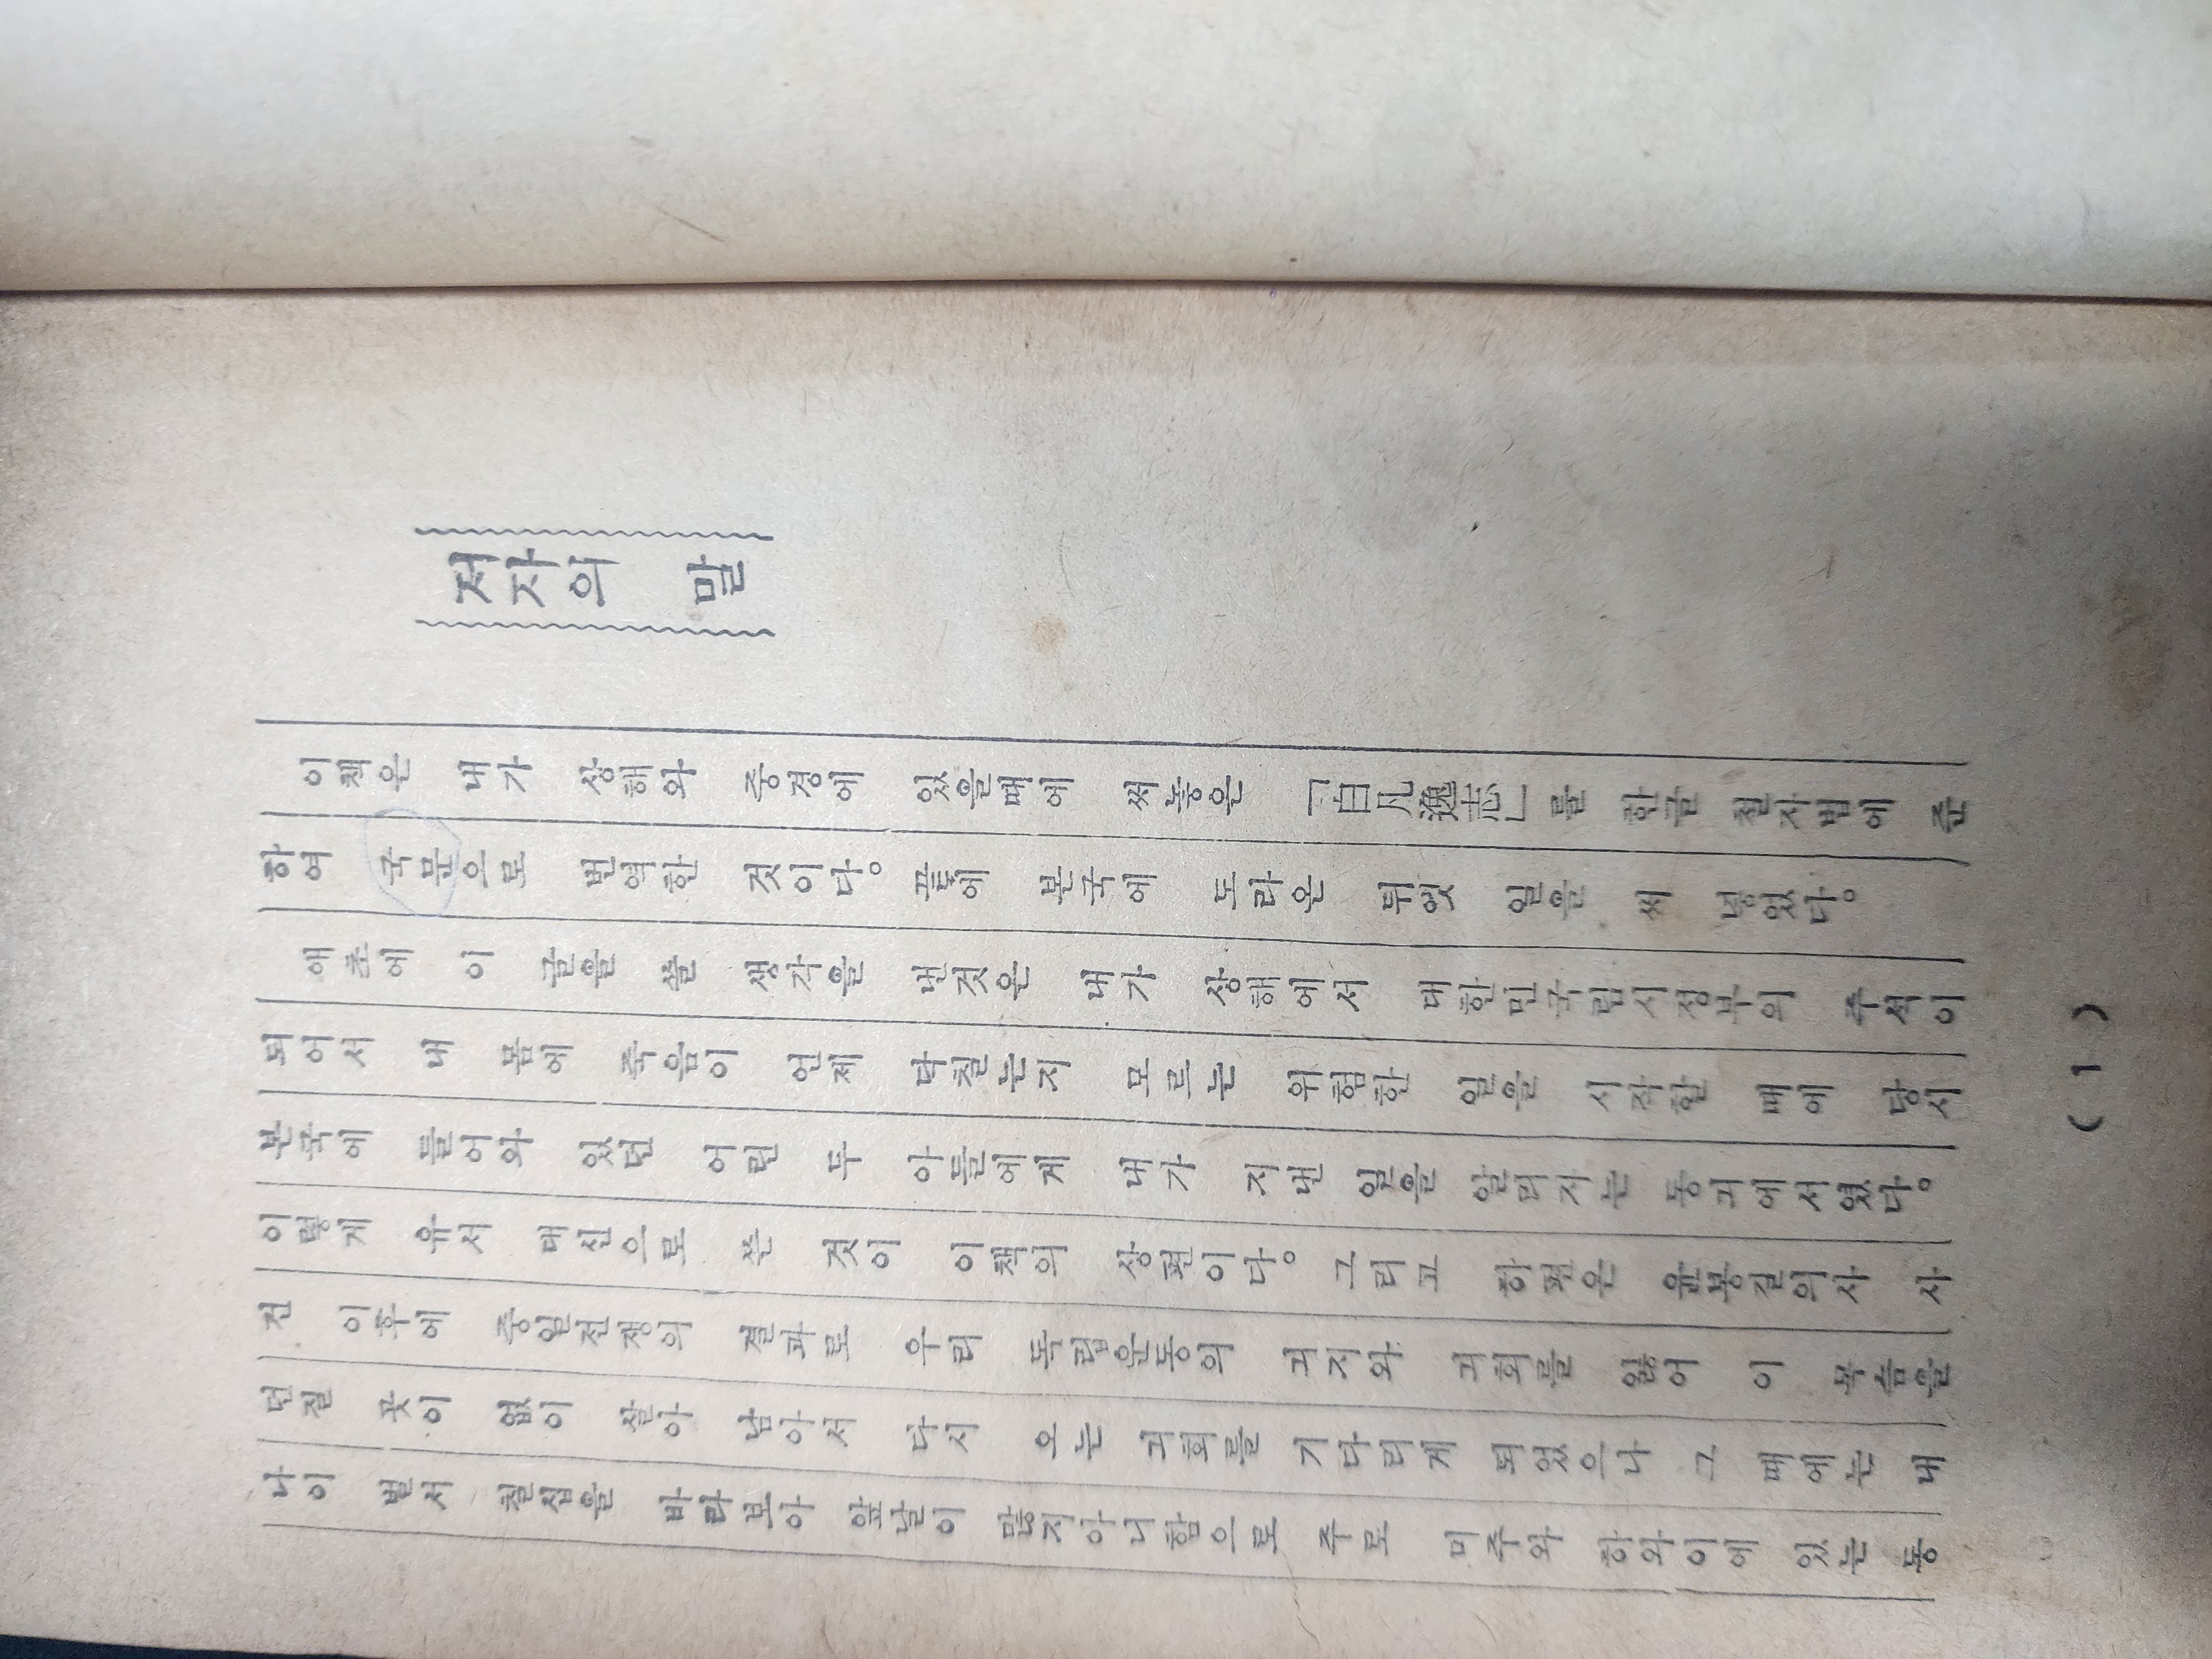 저자의 말
이책은 내가 상해와 중경에 있을때에 써놓은 「白凡逸志」를 한글 철자법에 준
하여 국문으로 번역한 것이다。 끝에 본국에 도라온 뒤엣 일을 써 넣었다。
애초에 이 글을 쓸 생각을 낸것은 내가 상해에서 대한민국림시정부의 주석이
되어서 내 몸에 죽음이 언제 닥칠는지 모르는 위험한 일을 시작할 때에 당시
본국에 들어와 있던 어린 두 아들에게 내가 지낸 일을 알리자는 동긔에서였다。
이렇게 유서 대신으로 쓴 것이 이책의 상편이다。 그리고 하편은 윤봉길의사 사
건 이후에 중일전쟁의 결과로 우리 독립운동의 긔지와 긔회를 잃어 이 목숨을
던질 곳이 없이 살아 남아서 다시 오는 긔회를 기다리게 되었으나 그 때에는 내
나이 벌서 칠십을 바라보아 앞날이 많지아니함으로 주로 미주와 하와이에 있는 동
( 1 )